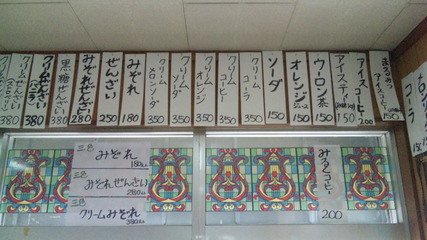 クリームぜんざい
380
クリームぜんざい
バニラ
380
黒糖ぜんざい
380
みぞれぜんざい
280
ぜんざい
250
みぞれ
180
クリーム
メロンソーダ
350
クリーム
ソーダ
350
クリーム
オレンジ
350
クリーム
コーヒー
350
クリーム
コーラ
350
ソーダ
150
オレンジ
ジュース
150
ウーロン茶
150
アイスティー
150
アイスコーヒー
200
アイスティー
150
コーラ
150
三色
みぞれ
180
三色
みぞれぜんざい
280
三色
クリームみぞれ
380
みるくコーヒー
200